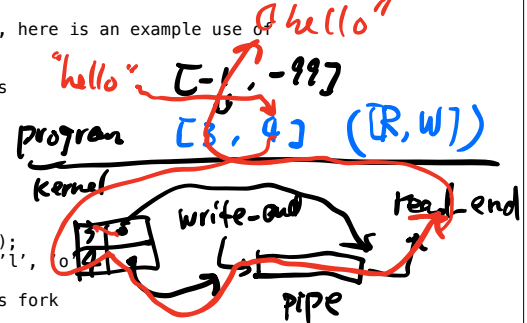 , here is an example use of
"hello"
"hello"
[-1, -99]
s
program [3, 4] ([R, W])
kernel
write_end
read_end
3
4
);
'l', 'o'
pipe
s fork